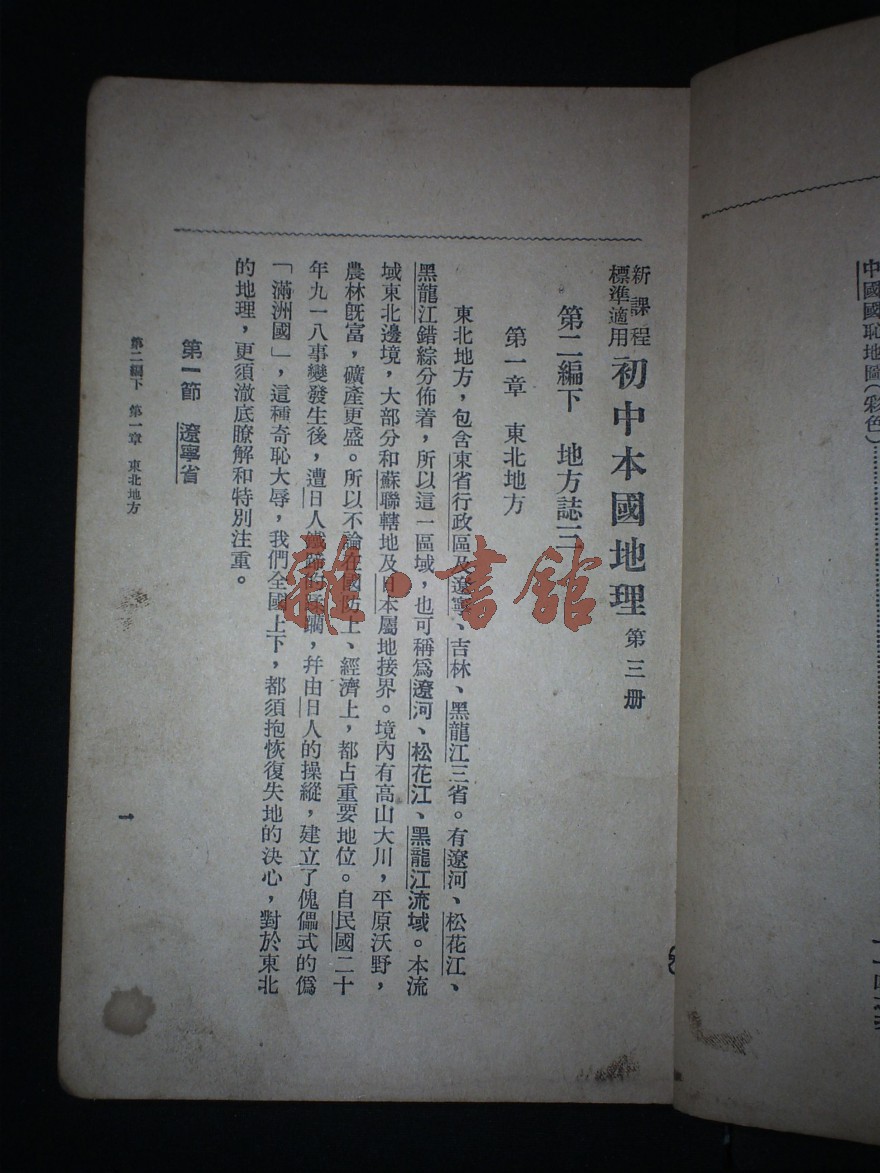 中國國恥地圖(彩色)
新課程
標準適用
初中本國地理 第三册
第二編下 地方誌三
第一章 東北地方
東北地方，包含東省行政區及遼寧、吉林、黑龍江三省。有遼河、松花江、
黑龍江錯綜分佈着，所以這一區域，也可稱爲遼河、松花江、黑龍江流域。本流
域東北邊境，大部分和蘇聯轄地及日本屬地接界。境內有高山大川，平原沃野，
農林旣富，礦產更盛。所以不論在國防上、經濟上，都占重要地位。自民國二十
年九一八事變發生後，遭日人鐵蹄的蹂躪，幷由日人的操縱，建立了傀儡式的僞
「滿洲國」，這種奇恥大辱，我們全國上下，都須抱恢復失地的決心，對於東北
的地理，更須澈底瞭解和特別注重。
第一節 遼寧省
第二編下 第一章 東北地方
一
雜·書館